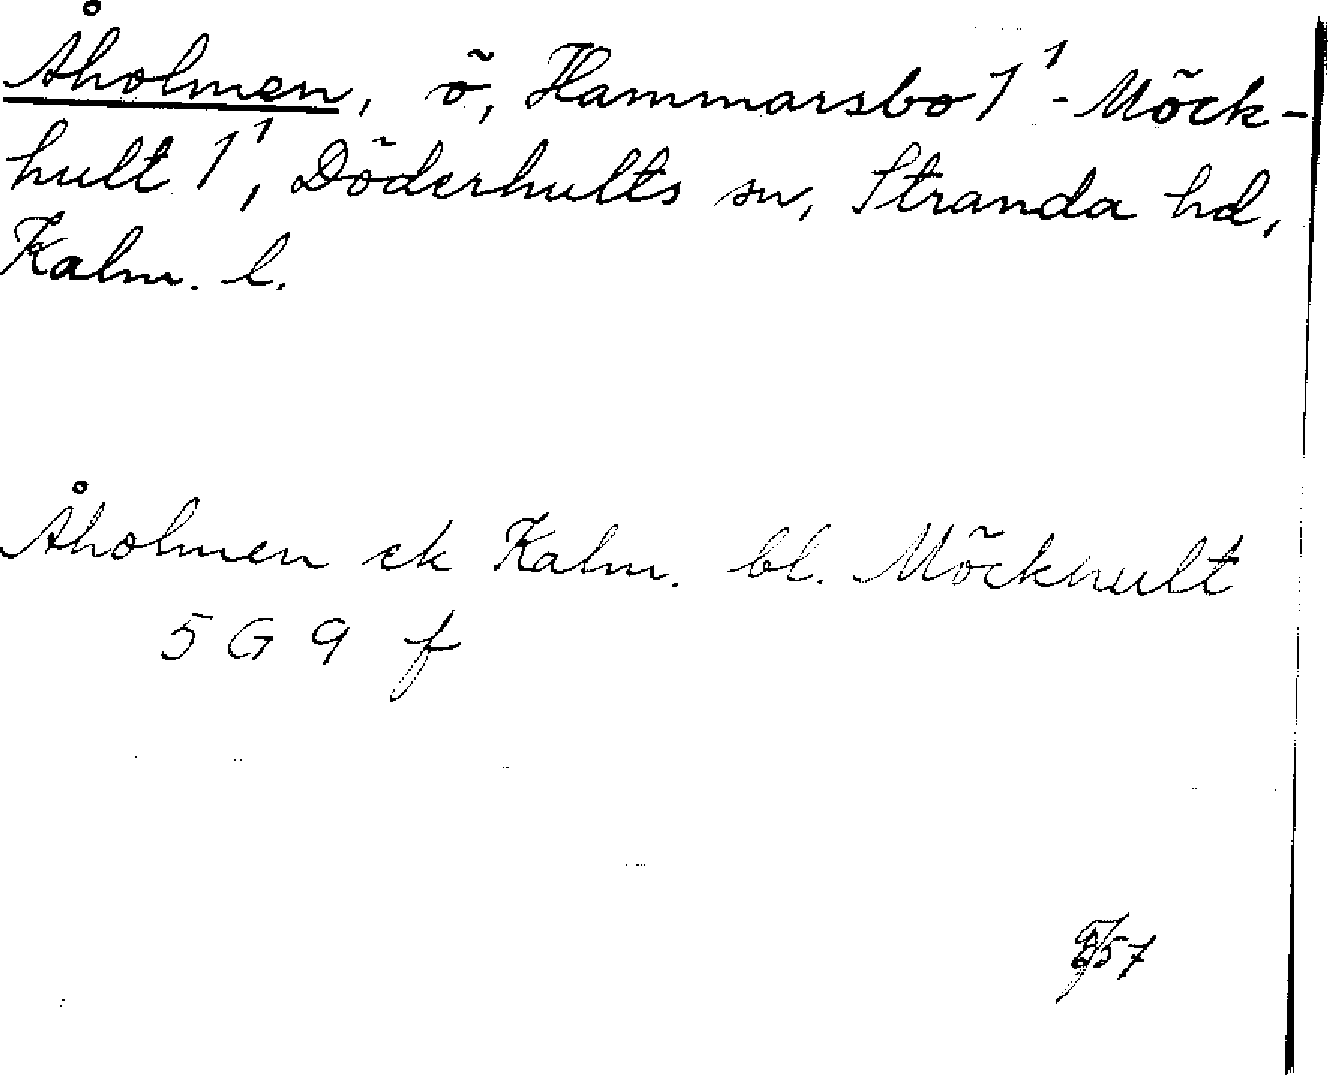 Åholmen, ö, Hammarsbo 1¹ - Möck-
hult 1¹, Döderhults sn, Stranda hd,
Kalm. l.
Åholmen ek Kalm. bl. Möckhult
5 G 9 f
/57